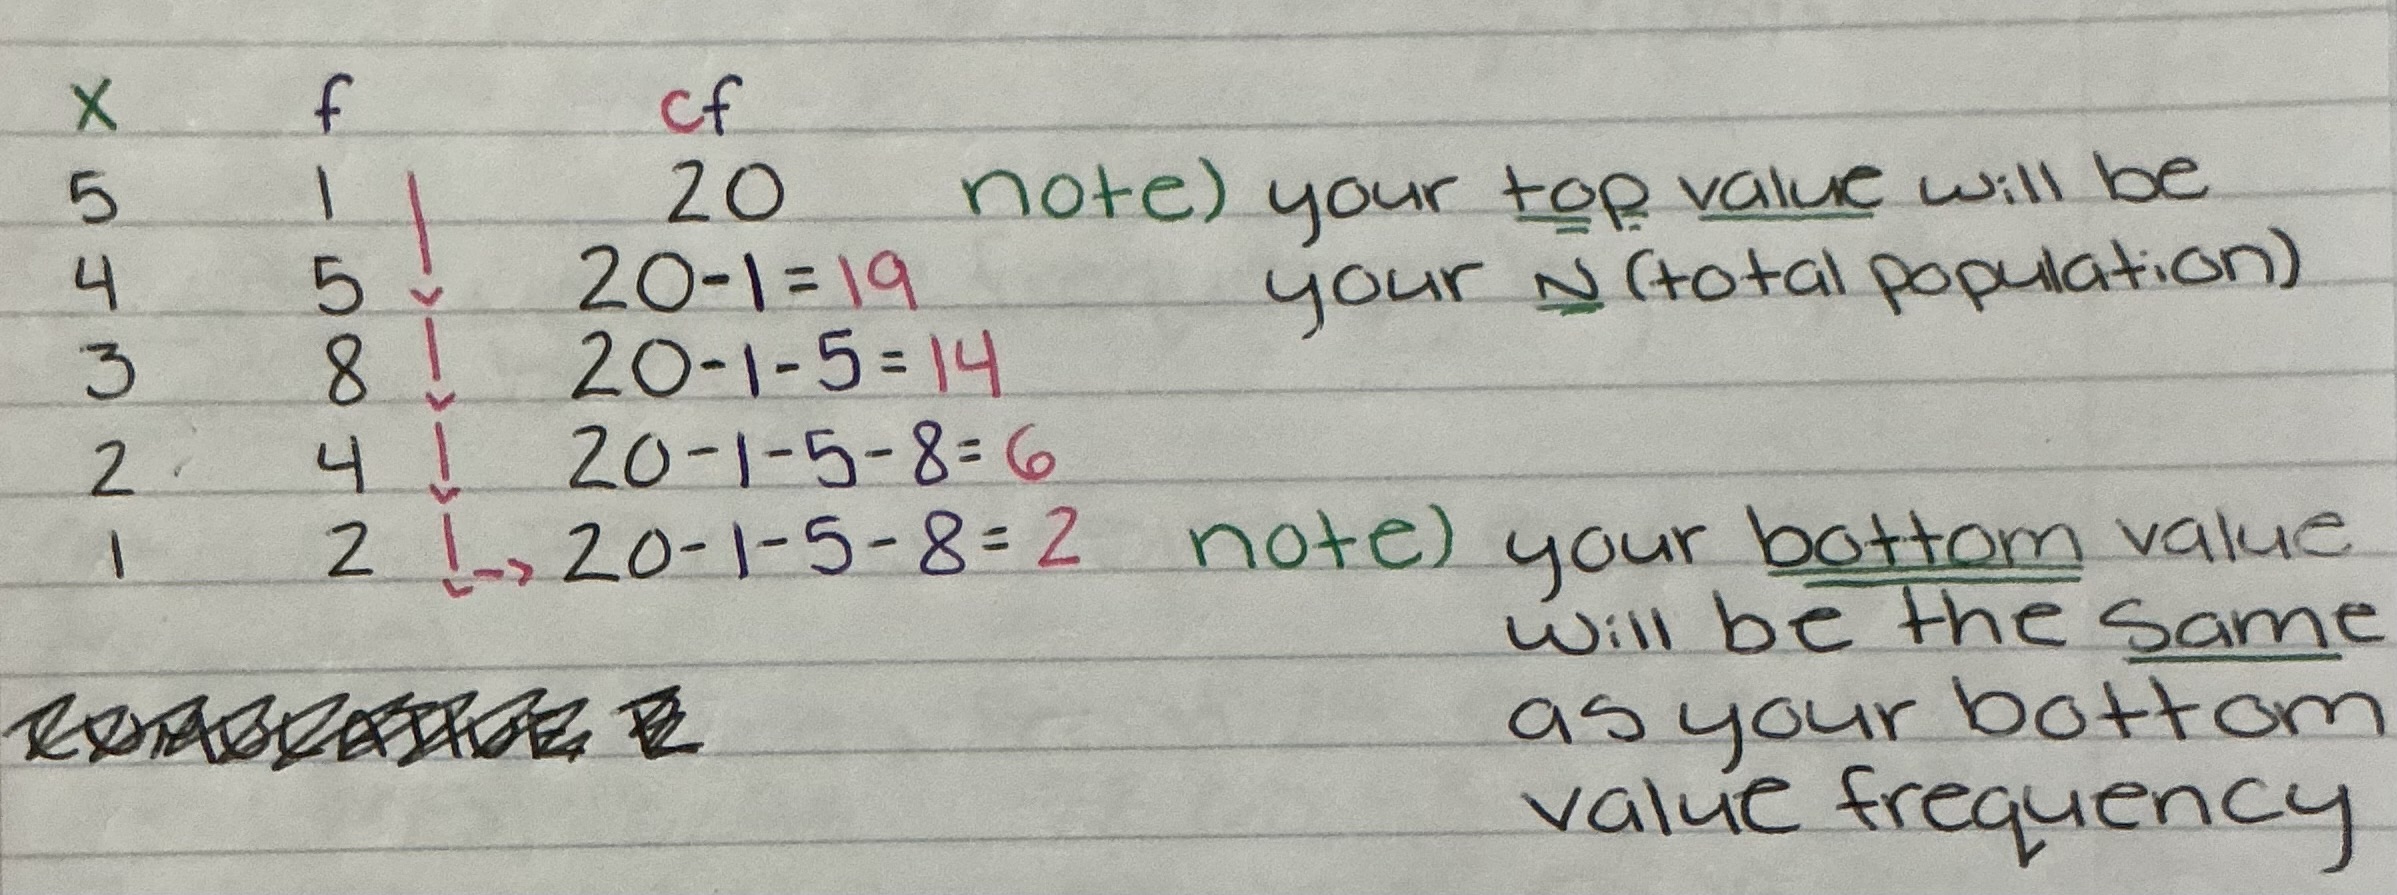 x f cf
5 1 20 note) your top value will be
4 5 20-1=19 your N (total population)
3 8 20-1-5=14
2 4 20-1-5-8=6
1 2 20-1-5-8=2 note) your bottom value
will be the same
as your bottom
value frequency